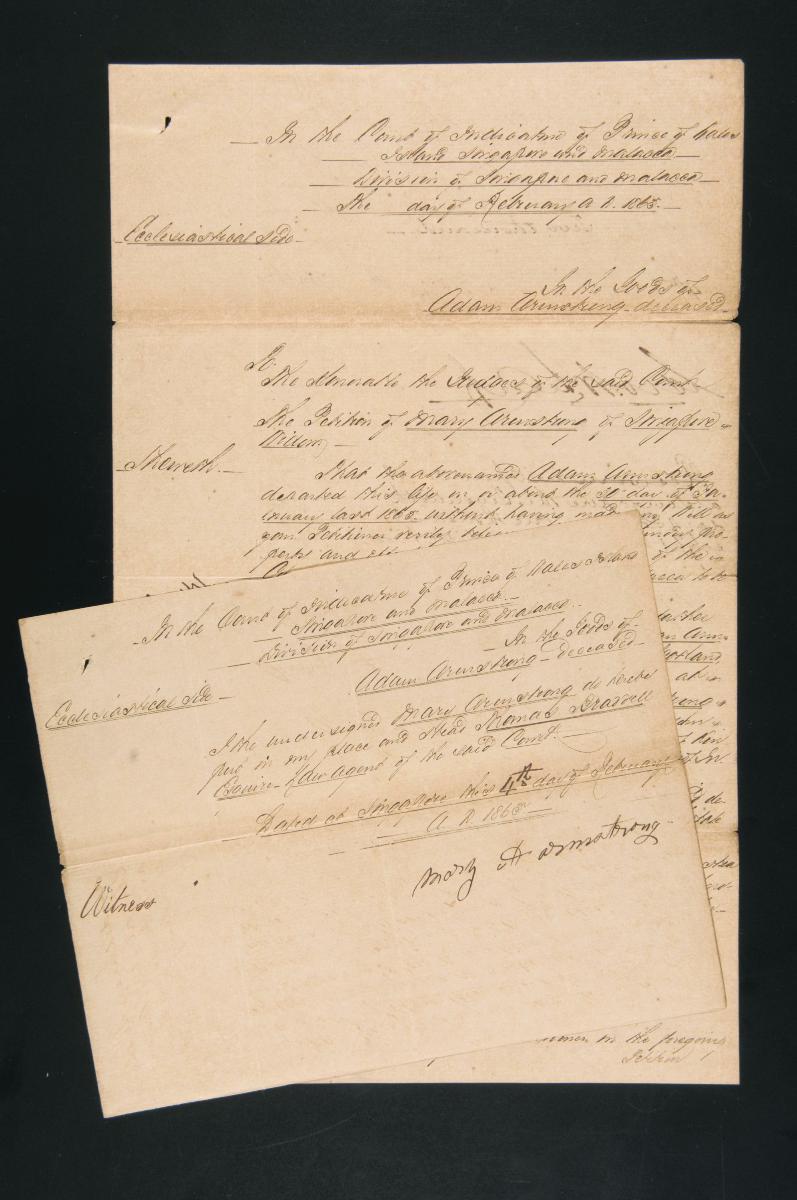 In the Court of Judicature of Prince of Wales
Island Singapore and Malacca
Division of Singapore and Malacca
The day of February A D. 1865.
Ecclesiastical Side
In the Goods of
Adam Armstrong deceased
To
The Honorable the Judges of the said Court
The Petition of Mary Armstrong of Singapore
Widow
Sheweth
That the abovenamed Adam Armstrong
departed this life on or about the day of Ja-
nuary last 1865. without having made any Will as
your Petitioner verily
perty and
of the
on the foregoing
Petition
In the Court of Judicature of Prince of Wales Island
Singapore and Malacca.
Division of Singapore and Malacca.
In the Goods of
Adam Armstrong deceased
Ecclesiastical Side
I the undersigned Mary Armstrong do hereby
put in my place and stead Thomas Braddell
Esquire Law Agent of the said Court.
Dated at Singapore this 4th day of February
A D 1865
Mary Armstrong
Witness